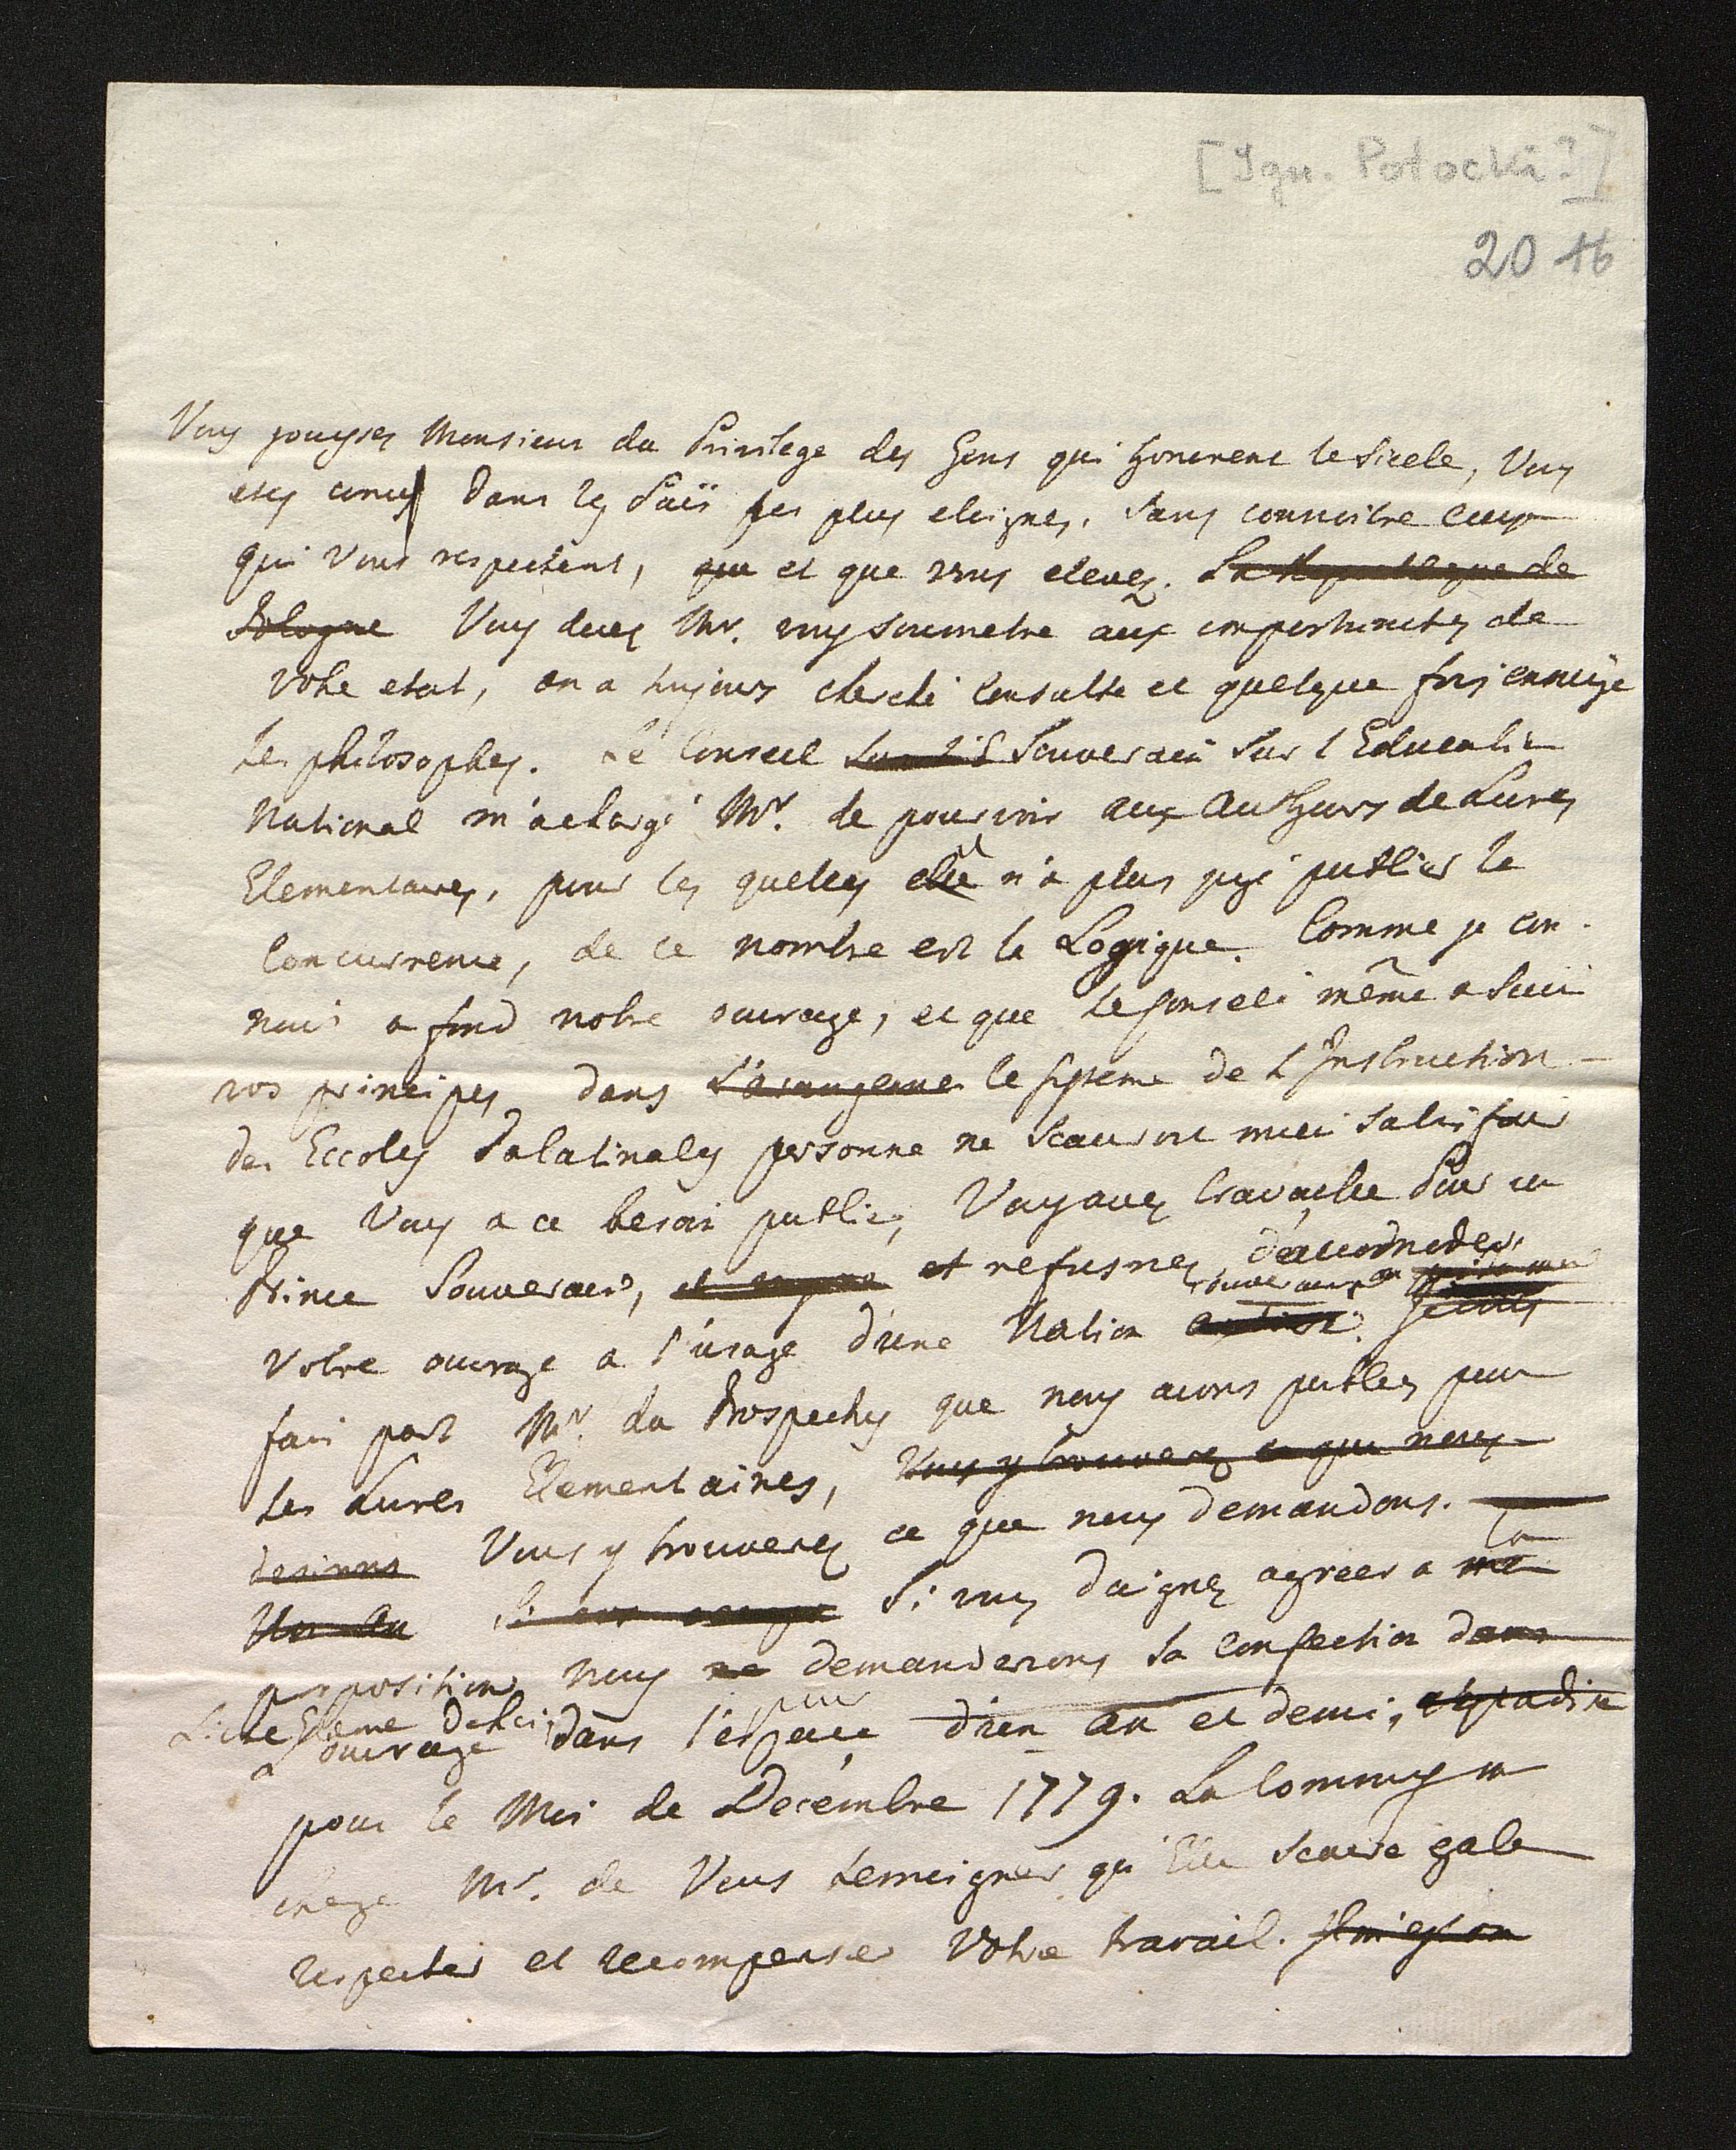 [Ign. Potocki?]
20 16
Vous jouyses Monsieur du Privilege des Gens qui honorent le Siecle, Vous
etes conus dans les Païs les plus eloignes, sans connoitre ceux
qui Vous respectent, que et que vous elevez. La Republique de
Pologne Vous devez Mr. vous soumetre aux importunites de
votre etat, on a toujours cherché consulte et quelque fois ennuÿe
les philosophes. Le Conseil Souverain sur l'Education
National m'a chargé Mr. de pourvoir aux Autheurs de Livres
Elementaires, pour les quelles elle n'a plus jugé publier le
Concurrence, de ce nombre est la Logique. Comme je con-
nois a fond votre ouvrage, et que le Conseil même a suivi
vos principes dans l'arrangeme le systeme de l'Instruction
des Eccoles Palatinales personne ne scauroit mieu satisfair
que Vous a ce besoin public, Vous avez travaillé pour un
Prince Souverain, et refusriez d'accorder
Votre ouvrage a l'usage d'une Nation souveraine
fais part Mr. du Prospectus que nous avons publiez pour
les Livres Elementaires, Vous y trouverez ce que nous
desirons Vous y trouverez ce que nous demandons.
Un an Si vous daignez agreer a ma la
proposition nous ne demanderons la confection dans
ouvrage dans l'espace pour d'un an et demi, c'est a dire
pour le Mois de Decembre 1779. La Commission
charge Mr. de Vous temoigner qu'Elle scaura egale
respecter et recompenser Votre travail.